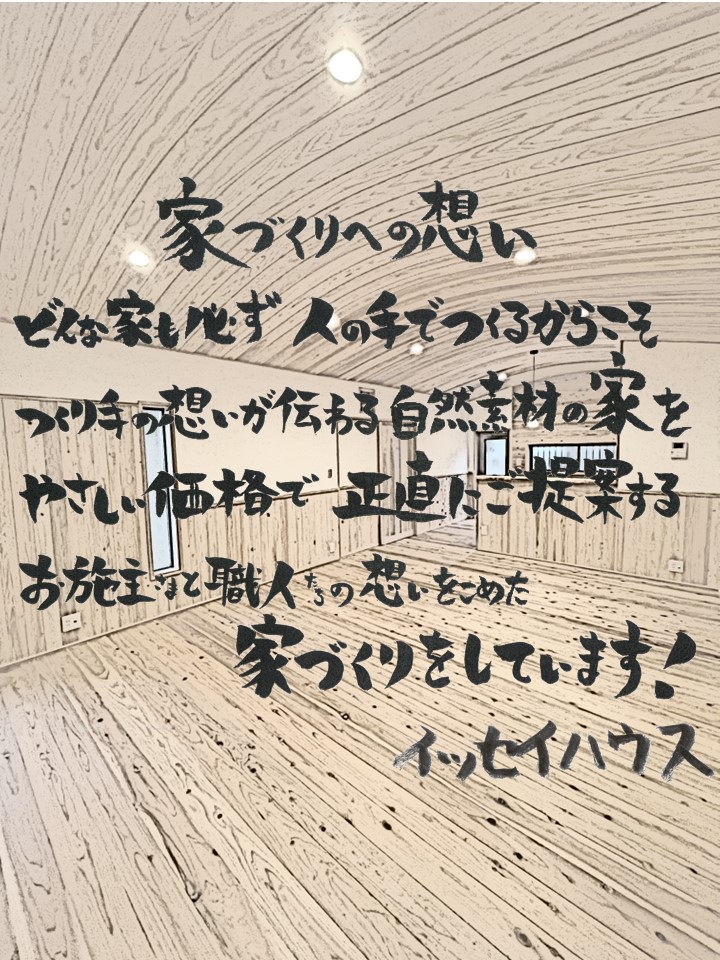 家づくりへの想い
どんな家も必ず 人の手でつくるからこそ
つくり手の想いが伝わる自然素材の家を
やさしい価格で 正直にご提案する
お施主さまと職人たちの想いをこめた
家づくりをしています!
イッセイハウス